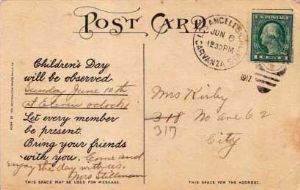 POST CARD
LOS ANGELES, CAL.
JUN 6
12 30 PM
GARVANZA STA.
1917
Children's Day
will be observed
Sunday June 10th
at Eleven oclock
Let every member
be present.
Bring your friends
with you. Come and
enjoy the day with us.
Mrs Stillman
THIS SPACE MAY BE USED FOR MESSAGE.
Mrs Kirby
318 No ave 62
317
City
THIS SPACE FOR ADDRESS ONLY.